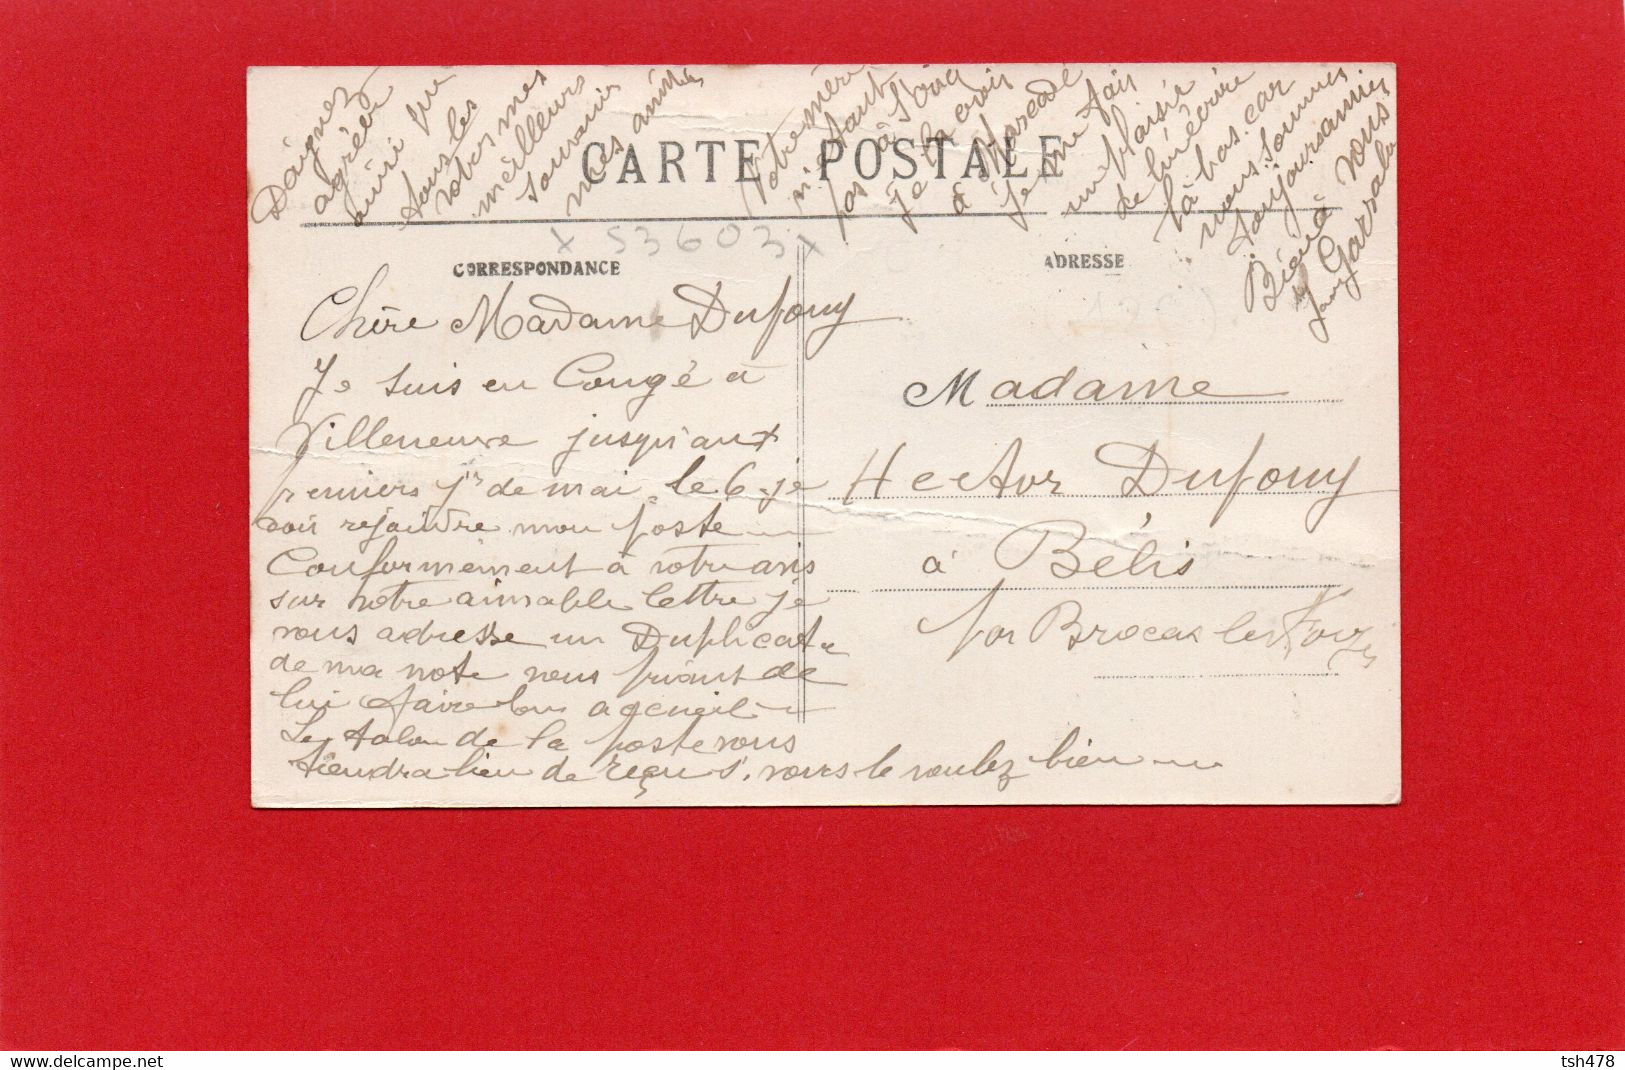 CARTE POSTALE
x 53603 x
CORRESPONDANCE
Chère Madame Dufouy
Je suis en Congé à
Villeneuve jusqu'aux
premiers jrs de mai le 6 je
dois rejoindre mon poste
Conformément à votre avis
sur votre aimable lettre je
vous adresse un Duplicata
de ma note vous priant de
lui faire bon accueil
Le talon de la poste vous
tiendra lieu de reçu s. vous le voulez bien
Daignez
agréer
ainsi que
tous les
votres mes
meilleurs
souvenirs
mes amitiés
Votre mère
n'étant
pas à
Je la crois
à
je me fais
un plaisir
de lui écrire
là bas. car
nous sommes
toujours amies
Bien à vous
ADRESSE
Madame
Hector Dufouy
à Bélis
par Brocas les Forges
tsh478